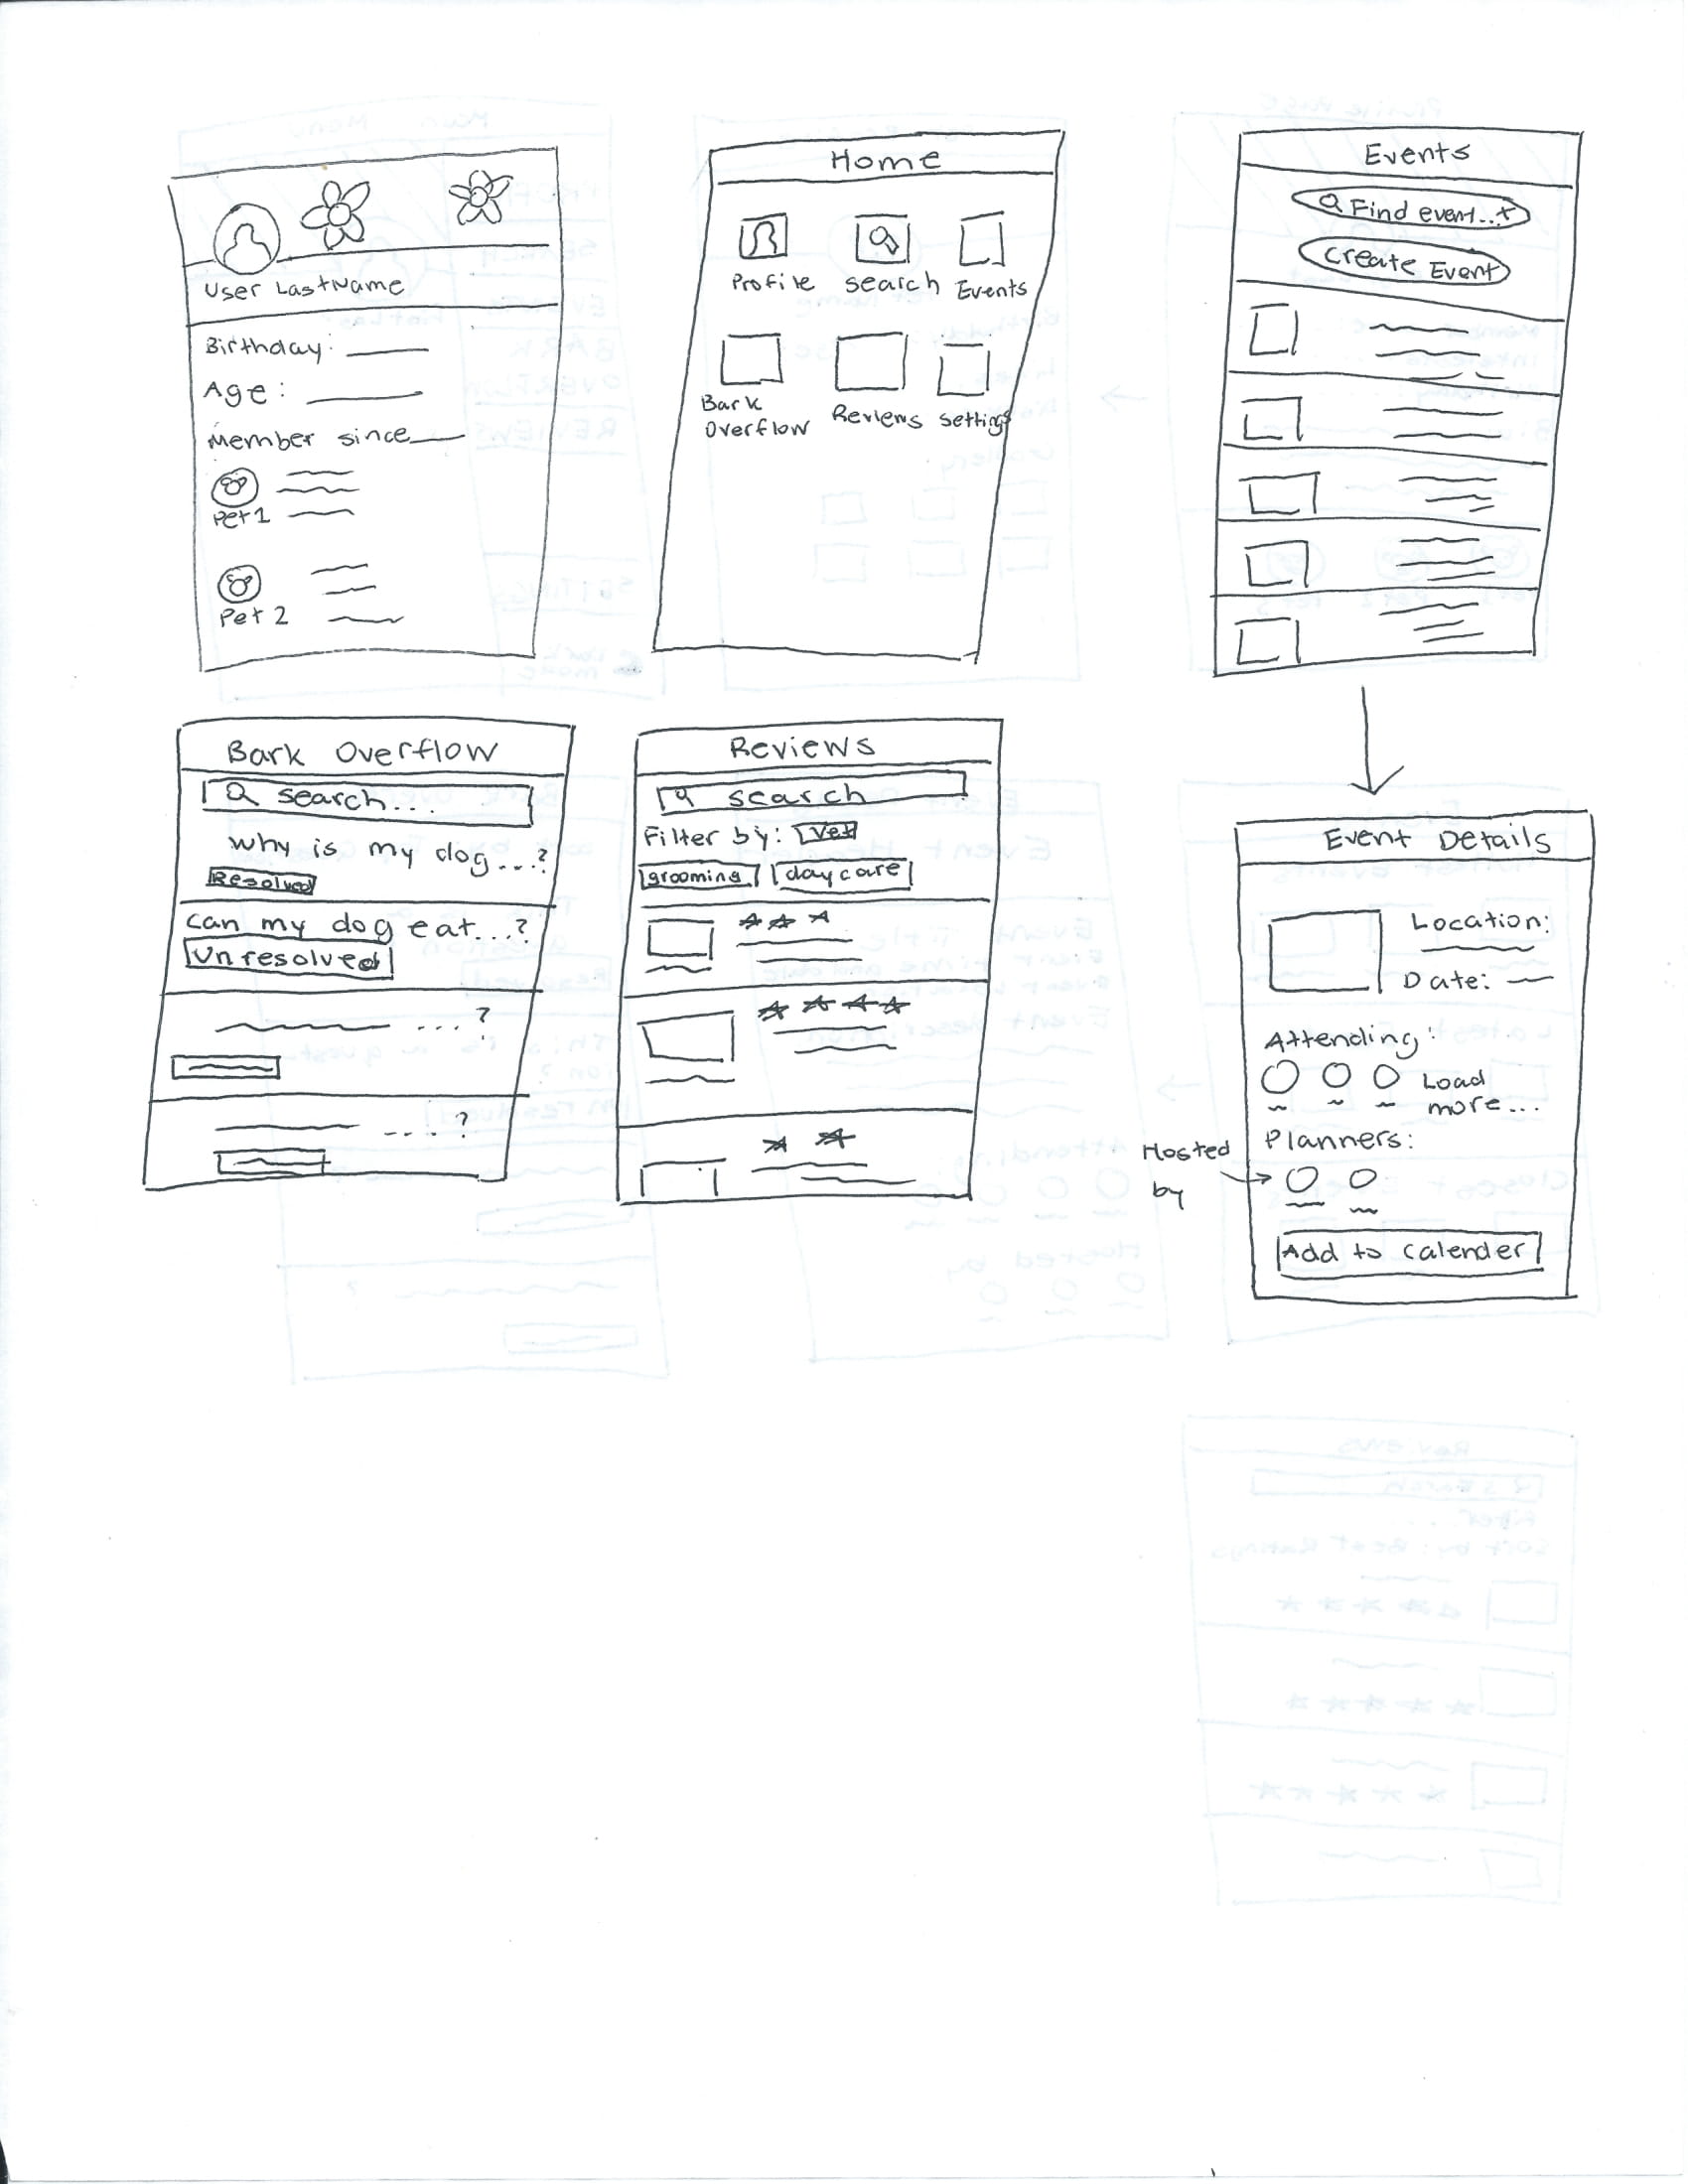 User LastName
Birthday:
Age:
Member since
Pet 1
Pet 2
Home
Profile
search
Events
Bark
Overflow
Reviews
settings
Events
Find event...
Create Event
Bark Overflow
search...
why is my dog...?
Resolved
can my dog eat...?
Unresolved
...?
....?
Reviews
search
Filter by: Vet
grooming
daycare
Event Details
Location:
Date:
Attending:
Load
more...
Planners:
Hosted
by
Add to calender